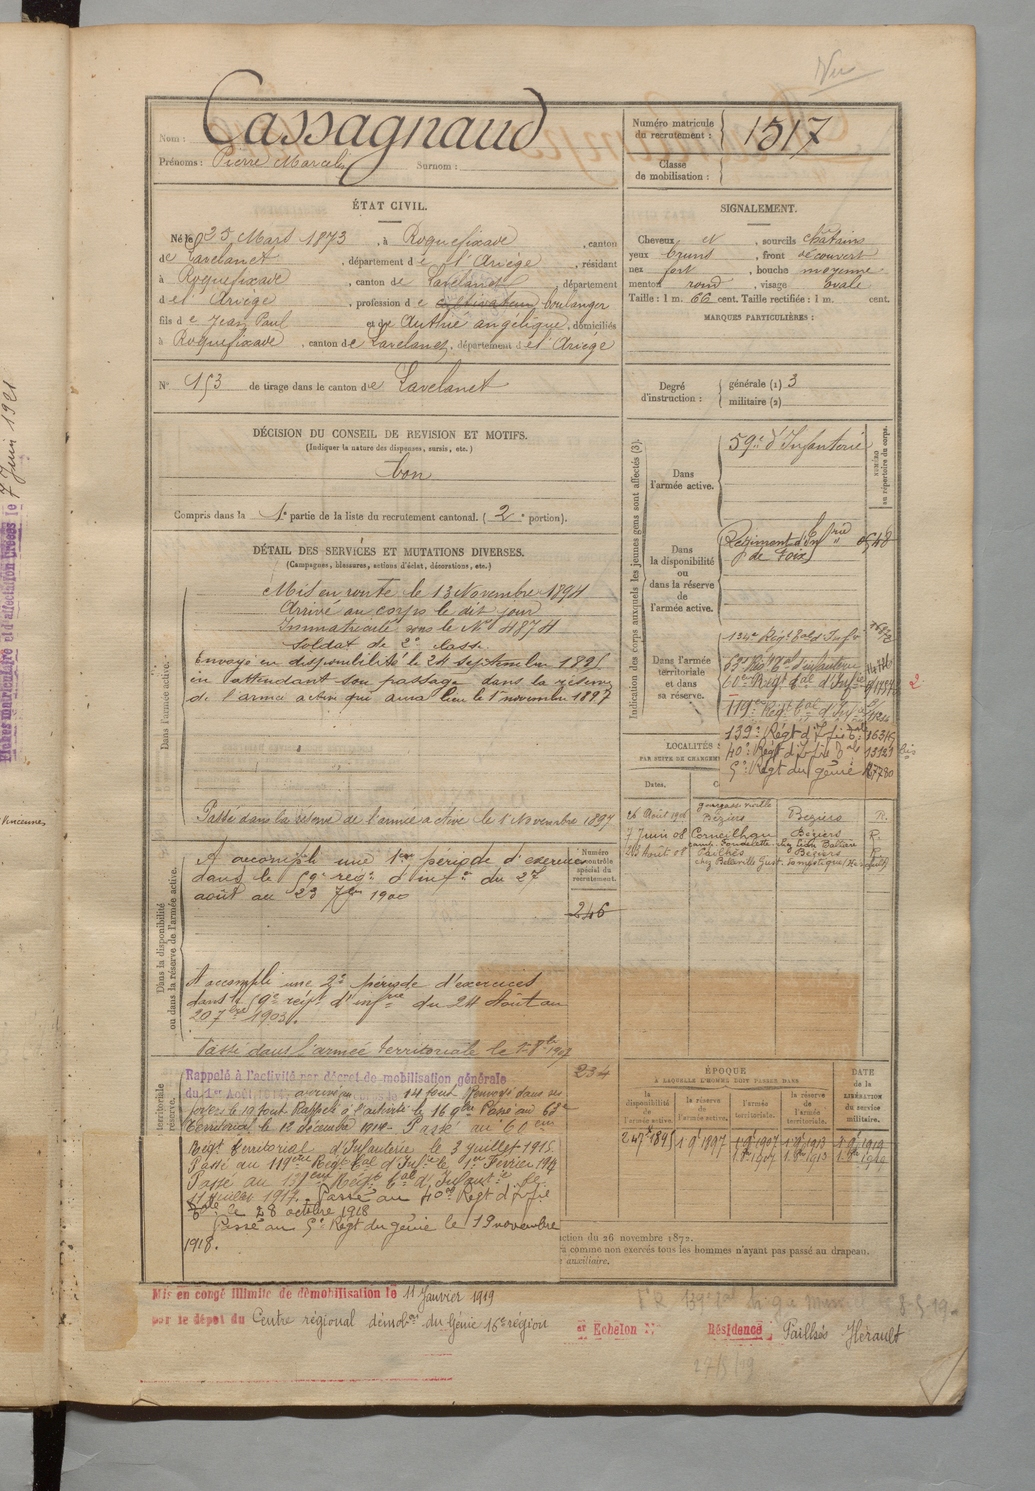 Vu
Nom : Cassagnaud
Prénoms : Pierre Marcelin Surnom :
Numéro matricule du recrutement : 1517
Classe de mobilisation :
ÉTAT CIVIL.
Né le 25 Mars 1873, à Roquefixade, canton
de Lavelanet, département de l'Ariège, résidant
à Roquefixade, canton de Lavelanet, département
de l'Ariège, profession de cultivateur, boulanger
fils de Jean Paul et de Authié angélique, domiciliés
à Roquefixade, canton de Lavelanet, département de l'Ariège
N° 153 de tirage dans le canton de Lavelanet
SIGNALEMENT.
Cheveux N, sourcils châtains
yeux bruns, front découvert
nez fort, bouche moyenne
menton rond, visage ovale
Taille : 1 m. 66 cent. Taille rectifiée : 1 m. cent.
MARQUES PARTICULIÈRES :
Degré d'instruction : générale (1) 3
militaire (2)
DÉCISION DU CONSEIL DE REVISION ET MOTIFS.
(Indiquer la nature des dispenses, sursis, etc.)
bon
Compris dans la 1e partie de la liste du recrutement cantonal. (2e portion).
DÉTAIL DES SERVICES ET MUTATIONS DIVERSES.
(Campagnes, blessures, actions d'éclat, décorations, etc.)
Dans l'armée active.
Mis en route le 13 Novembre 1894
Arrivé au corps le dit jour
Immatriculé sous le No 4874
Soldat de 2e classe
Envoyé en disponibilité le 24 septembre 1895
en attendant son passage dans la réserve
de l'armée active qui aura lieu le 1er novembre 1897
Passé dans la réserve de l'armée active le 1 Novembre 1897
Dans la disponibilité ou dans la réserve de l'armée active.
A accompli une 1ère période d'exercices
dans le 59e régt d'infie du 27
août au 23 7bre 1900
Numéro au contrôle spécial du recrutement.
246
A accompli une 2e période d'exercices
dans le 59e régt d'infrie du 24 Août au
20 7bre 1903.
Passé dans l'armée territoriale le 1er 8bre 1907
234
territoriale
réserve.
Rappelé à l'activité par décret de mobilisation générale
du 1er Août 1914, 14 aout Renvoyé dans ses
foyers le 19 aout Rappelé à l'activité le 16 9bre Passé au 63e
territorial le 12 décembre 1914. Passé au 60eme
Régt territorial d'Infanterie le 3 juillet 1915.
Passé au 119eme Régt tal d'Infie le 1er Février 1917
Passé au 139eme Régt tal d'Infantie le
11 juillet 1917. Passé au 40e Régt d'Infie
tale le 28 octobre 1918
Passé au 5e Régt du génie le 19 novembre
1918.
Indication des corps auxquels les jeunes gens sont affectés (3).
NUMÉRO au répertoire du corps.
Dans l'armée active.
59e d'Infanterie
Dans la disponibilité ou dans la réserve de l'armée active.
Régiment d'Infrie
de Foix
Dans l'armée territoriale et dans sa réserve.
134e Régt tal d'Infie
63e Régt tal d'Infanterie
60e Régt tal d'Infie
119e Régt tal d'Infie
139e Régt d'Infie tale 16345
40e Régt d'Infie tale 13121 bis
5e Régt du génie
2
LOCALITÉS
PAR SUITE DE CHANGEM
Dates.
26 Août 1906 Béziers Béziers R.
7 Juin 08 Corneilhan Béziers R.
23 Août 08 Pailhès Béziers R.
ÉPOQUE
À LAQUELLE L'HOMME DOIT PASSER DANS
la disponibilité de l'armée active.
la réserve de l'armée active.
l'armée territoriale.
la réserve de l'armée territoriale.
DATE de la LIBÉRATION du service militaire.
24 7bre 1895 1 9bre 1897 1 9bre 1907 1 9bre 1913 1 9bre 1919
1 8bre 1907 1 8bre 1913 1 8bre 1919
ction du 26 novembre 1872.
ra comme non exercés tous les hommes n'ayant pas passé au drapeau.
auxiliaire.
Mis en congé illimité de démobilisation le 11 Janvier 1919
par le dépôt du Centre régional démobon du Génie 16e région
er Echelon N° Résidence, Pailhès Hérault
27/5/19
7 Juin 1921
Fixes matriculaire et d'affectation fixées le
Vincennes